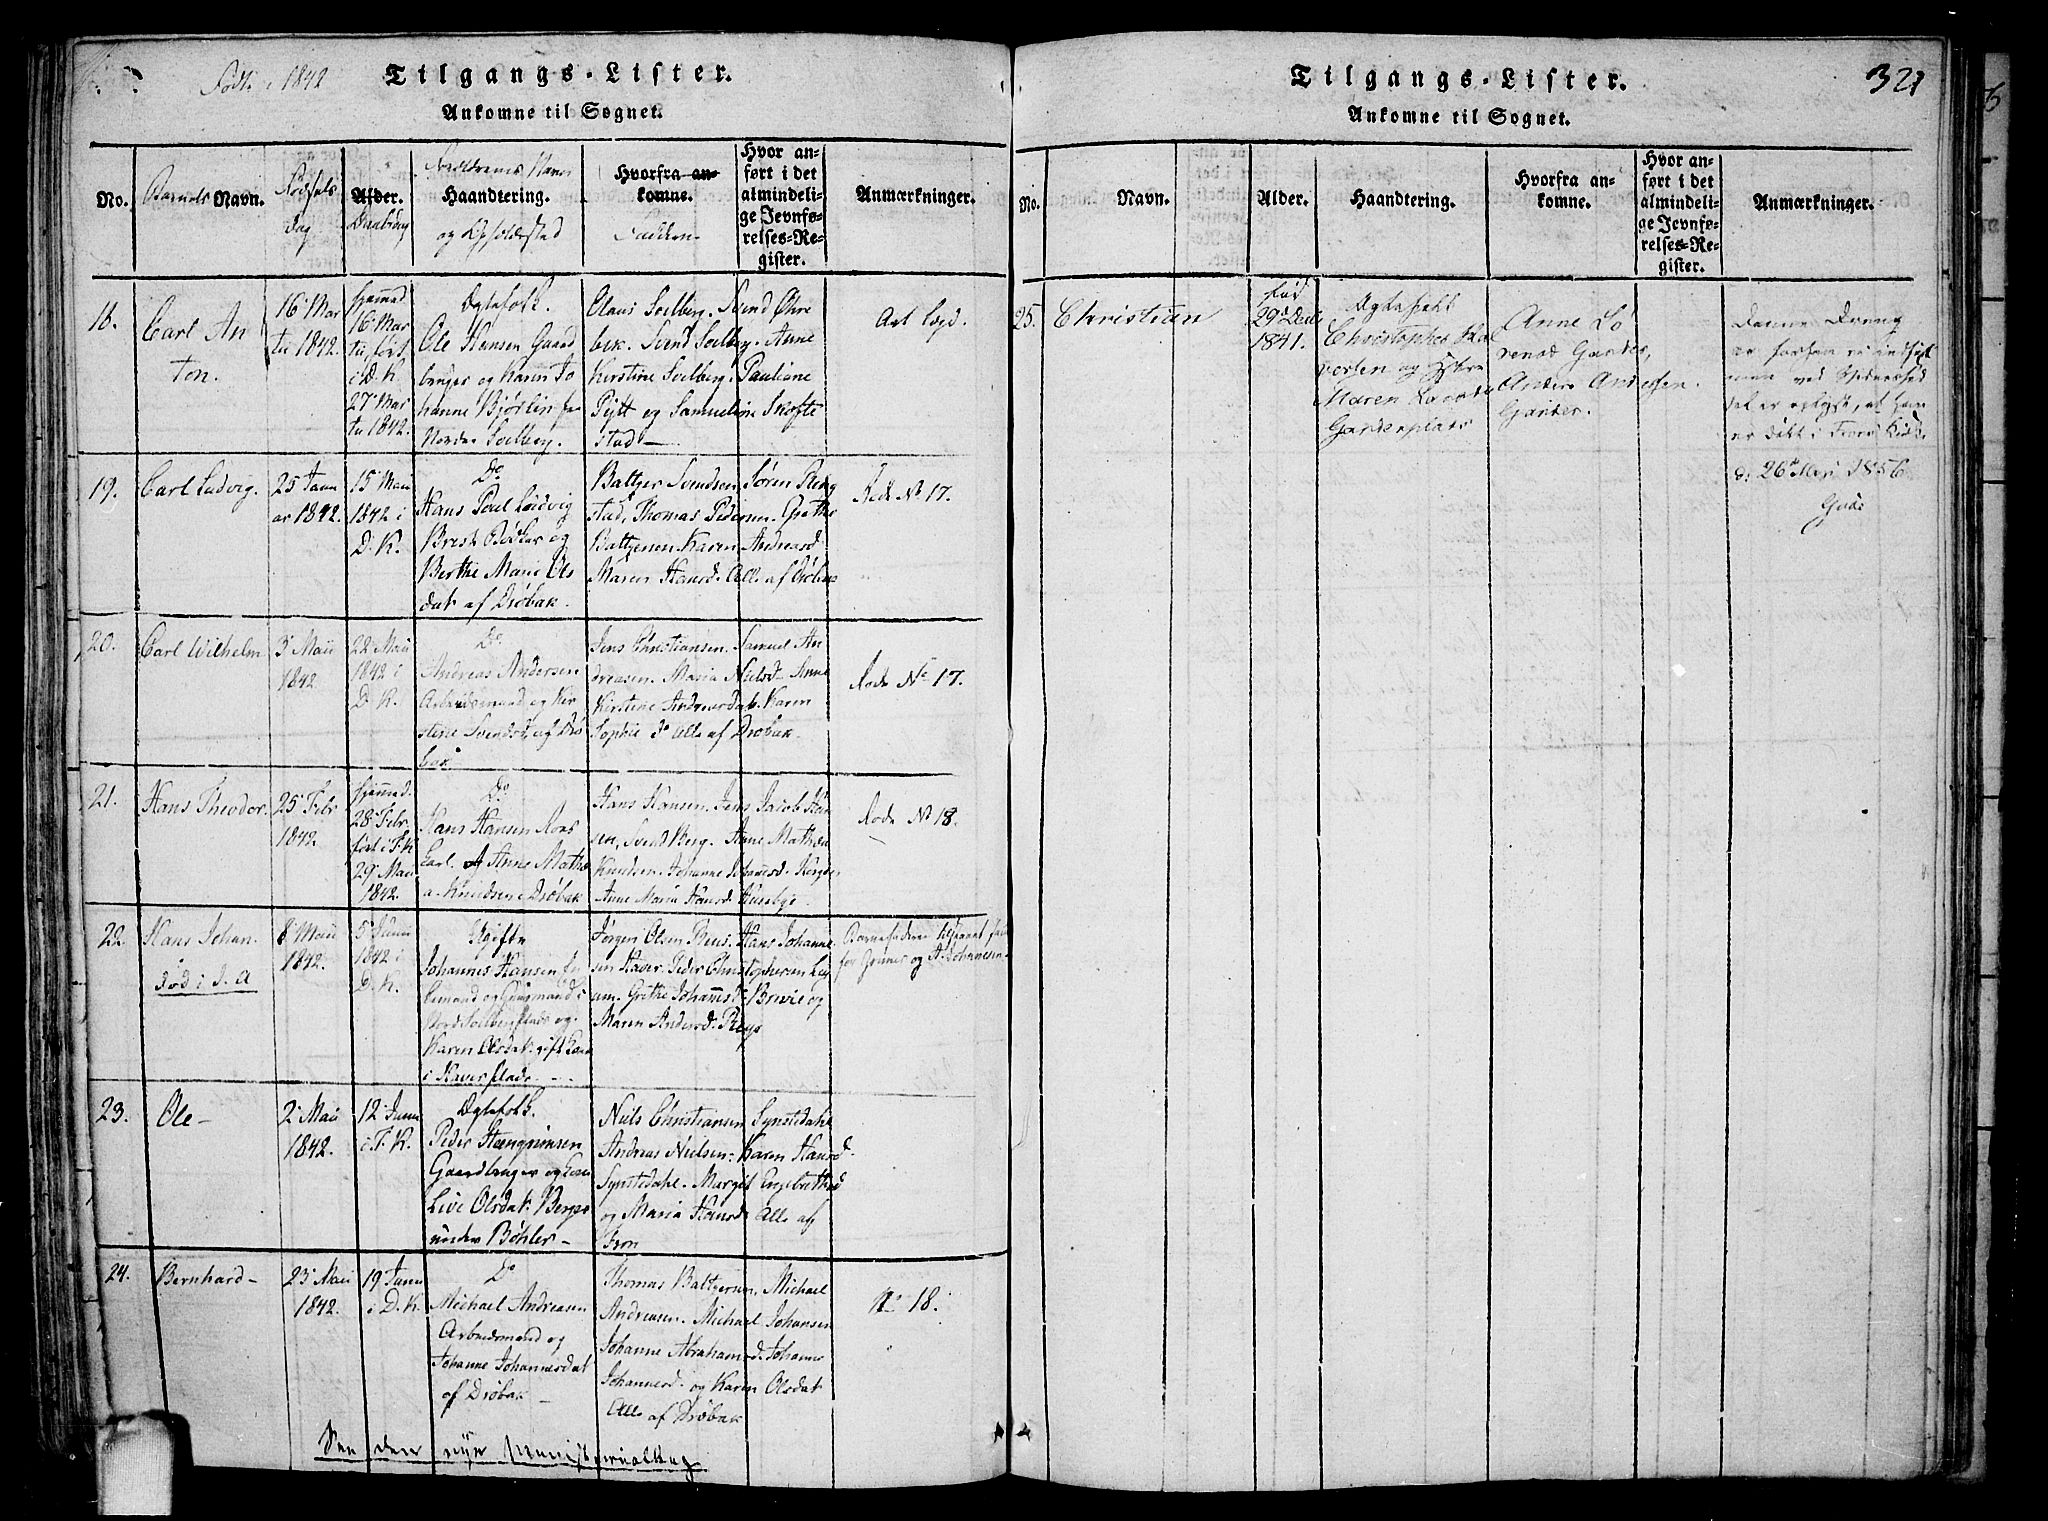 Født i 1842
Tilgangs-Lister.
Ankomne til Sognet.
No.
Barnets Navn.
Fødsels Dag
Alder.
Daabsdag
Forældrenes Navn
Haandtering.
og Opholdssted
Hvorfra an-
komne.
Faddere
Hvor an-
ført i det
almindeli-
ge Jevnfø-
relses-Re-
gister.
Anmærkninger.
18.
Carl An
ton.
16 Mar
ts 1842.
hjemmed
16 Mar
ts,ført
i D. K.
27 Mar
ts 1842.
Ægtefolk.
Ole Hansen Gaard
bruger og Karen Jo
hanne
Nordre Solberg.
Claus Solberg. Svend Øhre
bek. Svend Solberg. Anne
Kirstine Solberg. Pauliane
Pytt og Samueline Skofte
stad
19.
Carl Ludvig.
25 Janu
ar 1842.
15 Mai
1842 i
D. K.
Do
Hans Poul Ludvig
Bøker og
Berthe Marie Ols
dat af Drøbak.
Baltzer Svendsen. Søren Ring
stad, Thomas Pedersen. Grethe
Baltzersen. Karen Andreasd
Maren Hansd. Alle af Drøbak
Rode No 17.
20.
Carl Wilhelm
3 Mai
1842
22 Mai
1842 i
D. K.
Do
Andreas Andersen
Arbeidsmand og Kir
stine Svendsd. af Drø
bak
Jens Christiansen. Samuel An
dreasen. Maria Nielsd. Anne
Kirstine Andreasdat. Karen
Sophie Do Alle af Drøbak.
Rode No 17.
21.
Hans Theodor.
25 Febr
1842
hjemmed.
28 Febr
ført i F. K
29 Mai
1842.
Do
Hans Hansen
Carl. Anne Mathe
a Knudsen Drøbak
Hans Hansen. Jens Jacob Han
sen, Svend Berg. Anne Mathea
Knudsen. Johanne Johannesd.
Anne Maria Hansd. Husebye.
Rode No 18.
22.
Hans Johan.
død i I. A
8 Mai
1842.
5 Juni
1842 i
D. K.
Ugifte
Johannes Hansen
Nord Solberg Plads og
Karen Olsdat. gift Kone
i Haver Plads
Jørgen Olsen. Hans Johanne
sen Haver. Peder Christophersen
Grethe Johannesd. Brevie og
Maren Andersd.
Barnefaderen
23.
Ole
2 Mai
1842.
12 Juni
i F. K.
Ægtefolk.
Peder Stengrimsen
Gaardbruger og Kone
Live Olsdat. Berger
under Bøhler
Niels Christiansen Synstedahl
Andreas Nielsen. Karen Hansd.
Synstedahl. Margit Engebrethsd
og Maria Hansd. Alle af
Fron
24.
Bernhard
23 Mai
1842.
19 Juni
i D. K.
Do
Michael Andreasen
Arbeidsmand og
Johanne Johannesdat
af Drøbak
Thomas Baltzersen. Michael
Andreasen. Michael Johansen
Johanne Abrahamsd. Johanne
Johannesd. og Karen Olsdat
Alle af Drøbak
No 18.
See den nye Ministerialbog
Tilgangs-Lister.
Ankomne til Sognet.
321
No.
Navn.
Alder.
Haandtering.
Hvorfra an-
komne.
Hvor an-
ført i det
almindeli-
ge Jevnfø-
relses-Re-
gister.
Anmærkninger.
25.
Christian
født
29 Decbr
1841.
Ægtefolk
Christopher Hal
vorsen og Hstru
Maren
Garderplads
Anne Lo
rensd Garder,
Anders Andersen
Garder.
Denne Dreng
det er oplyst, at han
er døbt i Frons Kirke
d: 26 Mai 1856
Gude